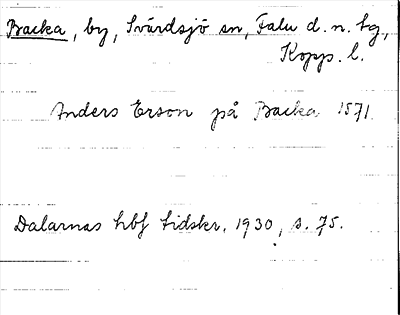 Backa, by, Svärdsjö sn, Falu d. n. tg,
Kopp. l.
Anders Erson på Backa 1571.
Dalarnas hbf tidskr. 1930, s. 75.